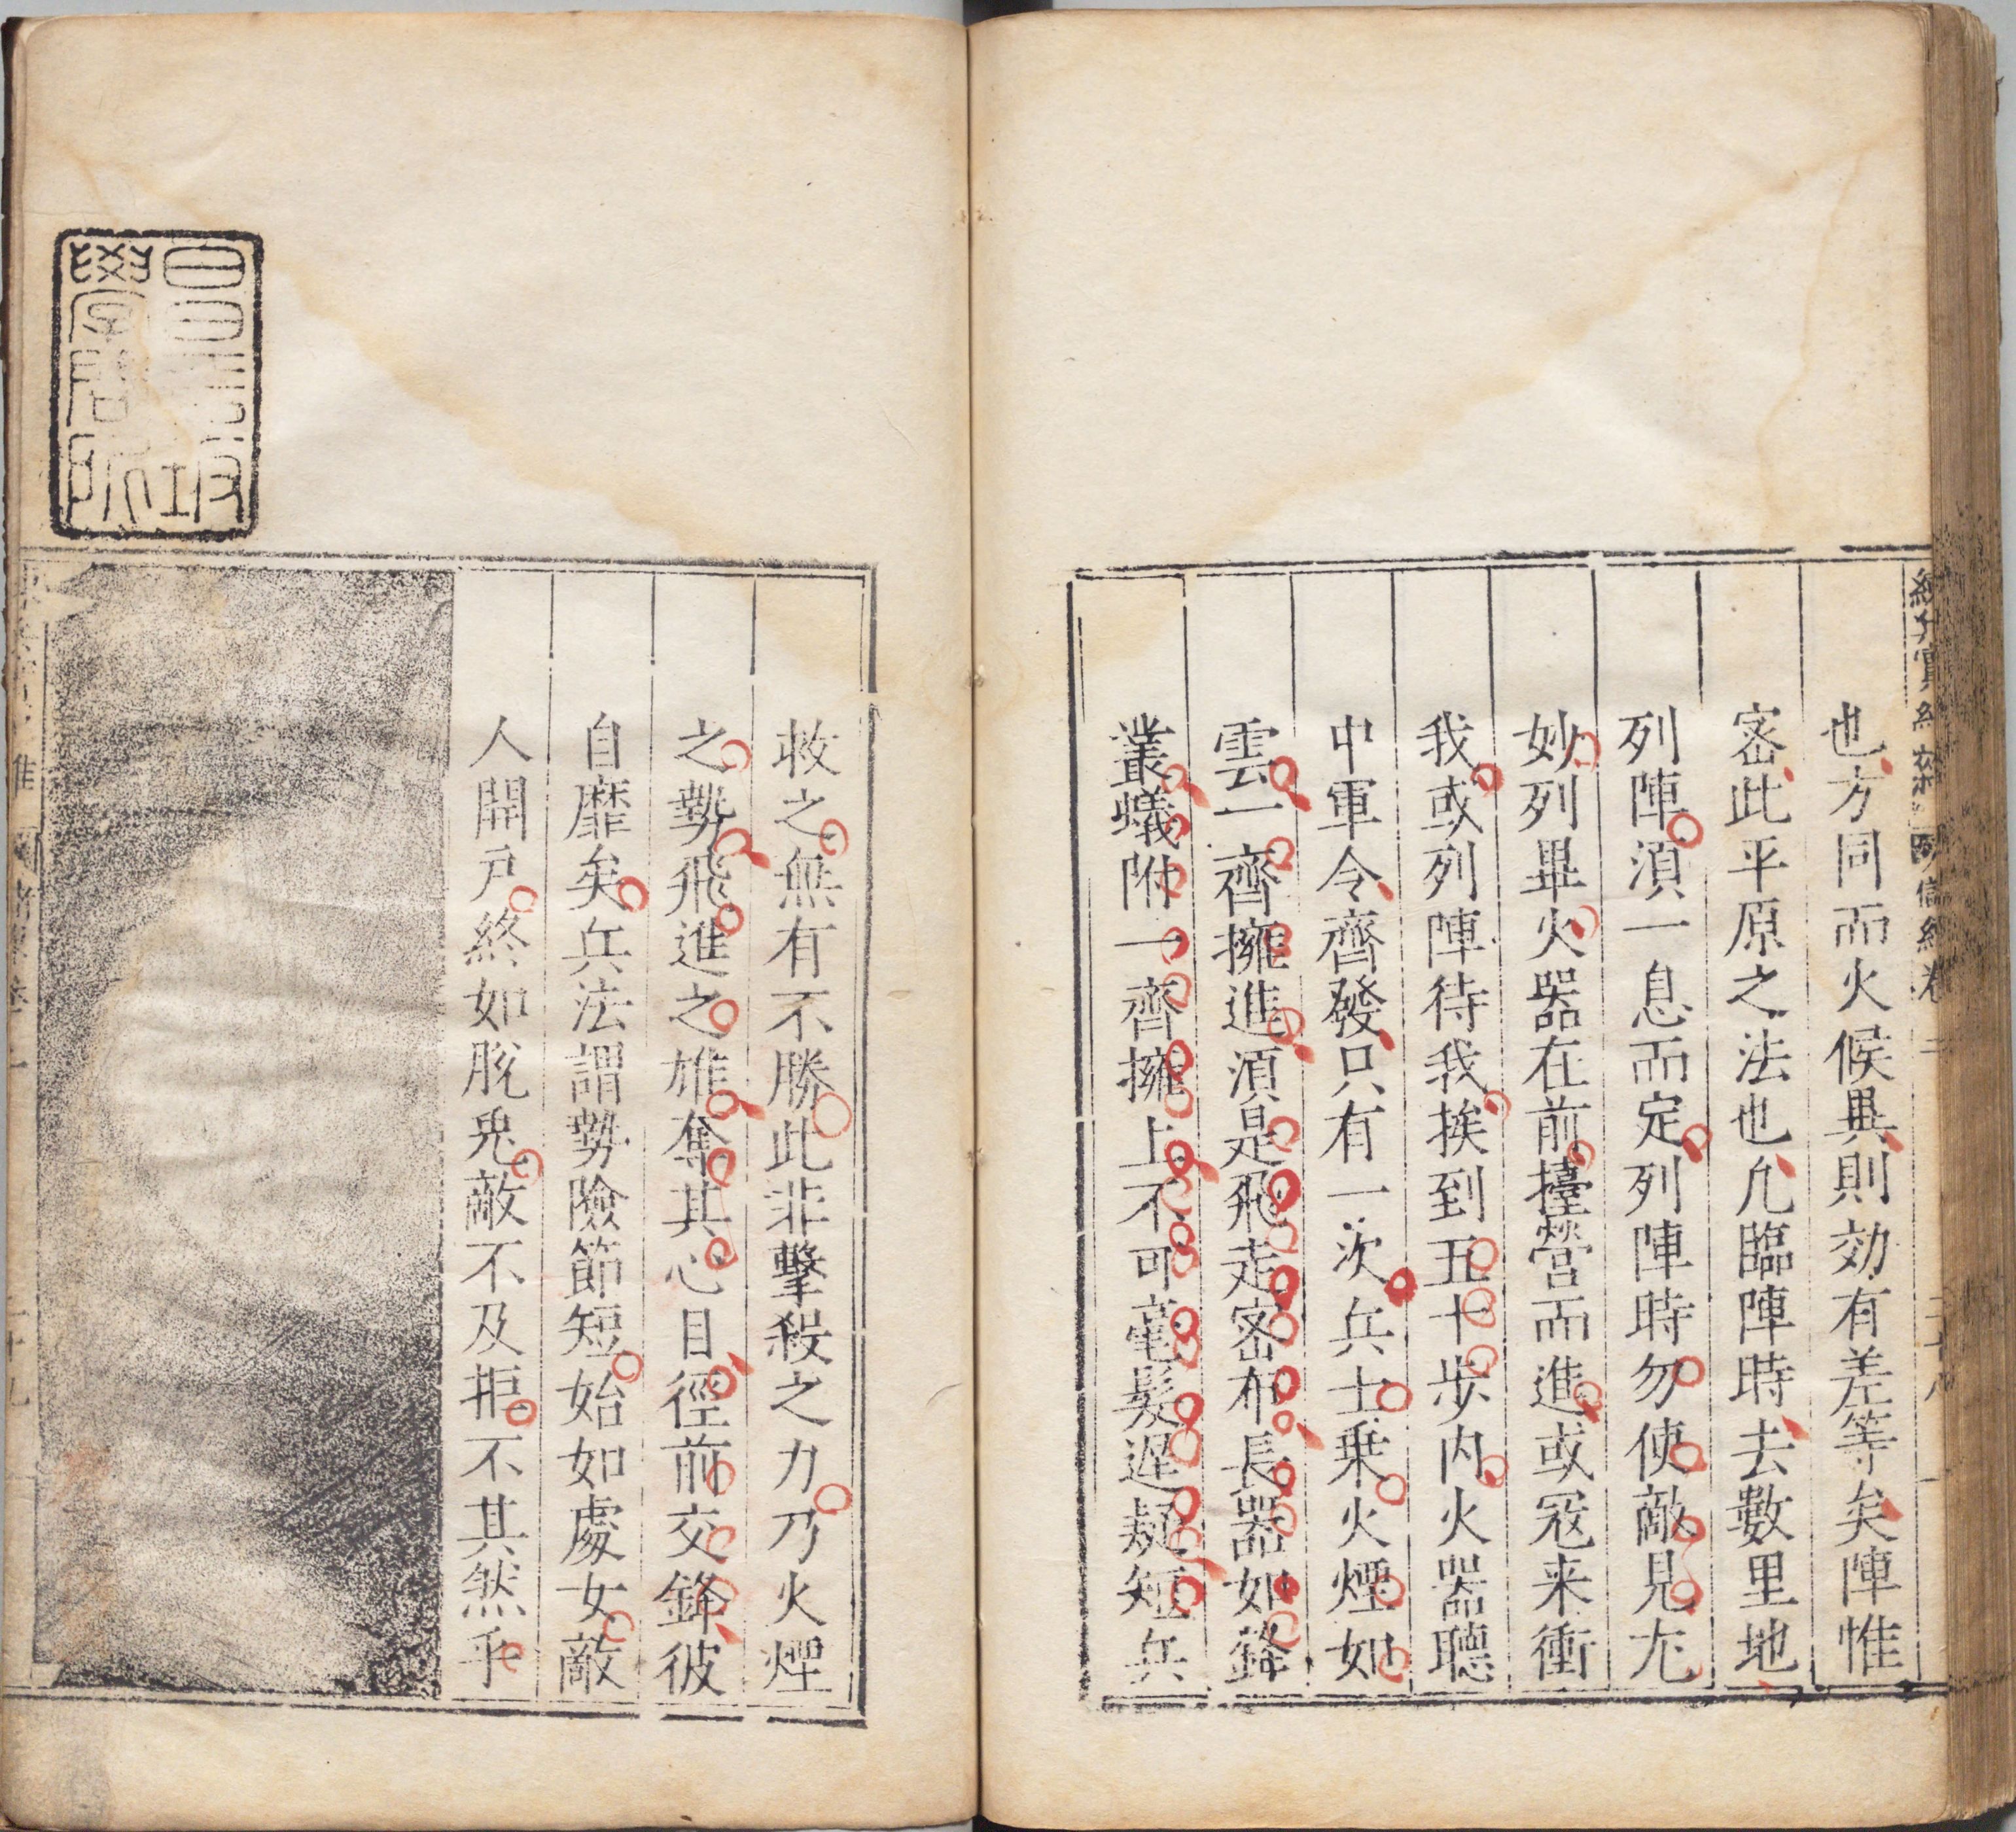 也方同而火候異則効有差等矣陣惟
密此平原之法也凢臨陣時去數里地
列陣湏一息而定列陣時勿使敵見尢
妙列畢火器在前擡營而進或冦来衝
我或列陣待我我挨到五十歩内火器聽
中軍令齊發只有一次兵士乗火煙如
雲一齊擁進湏是飛走密布長器如鋒
叢蟻附一齊擁上不可毫髮遲疑短兵
救之無有不勝此非擊殺之力乃火煙
之勢飛進之雄奪其心目徑前交鋒彼
自靡矣兵法謂勢險節短始如處女敵
人開戸終如脫兎敵不及拒不其然乎